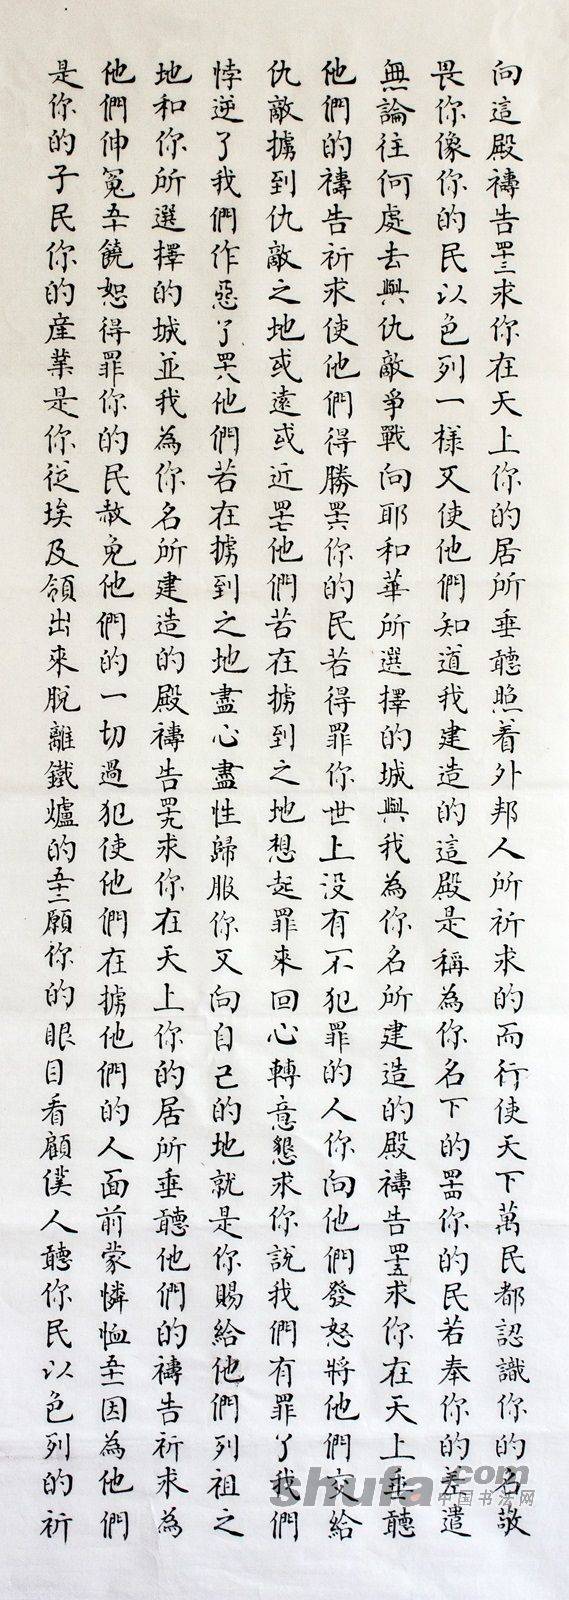 向這殿禱告四十三求你在天上你的居所垂聽照着外邦人所祈求的而行使天下萬民都認識你的名敬
畏你像你的民以色列一樣又使他們知道我建造的這殿是稱為你名下的四十四你的民若奉你的差遣
無論往何處去與仇敵爭戰向耶和華所選擇的城與我為你名所建造的殿禱告四十五求你在天上垂聽
他們的禱告祈求使他們得勝四十六你的民若得罪你世上没有不犯罪的人你向他們發怒將他們交給
仇敵擄到仇敵之地或遠或近四十七他們若在擄到之地想起罪來回心轉意懇求你說我們有罪了我們
悖逆了我們作惡了四十八他們若在擄到之地盡心盡性歸服你又向自己的地就是你賜給他們列祖之
地和你所選擇的城並我為你名所建造的殿禱告四十九求你在天上你的居所垂聽他們的禱告祈求為
他們伸冤五十饒恕得罪你的民赦免他們的一切過犯使他們在擄他們的人面前蒙憐恤五十一因為他們
是你的子民你的產業是你從埃及領出來脫離鐵爐的五十二願你的眼目看顧僕人聽你民以色列的祈
shufa.com
中国书法网